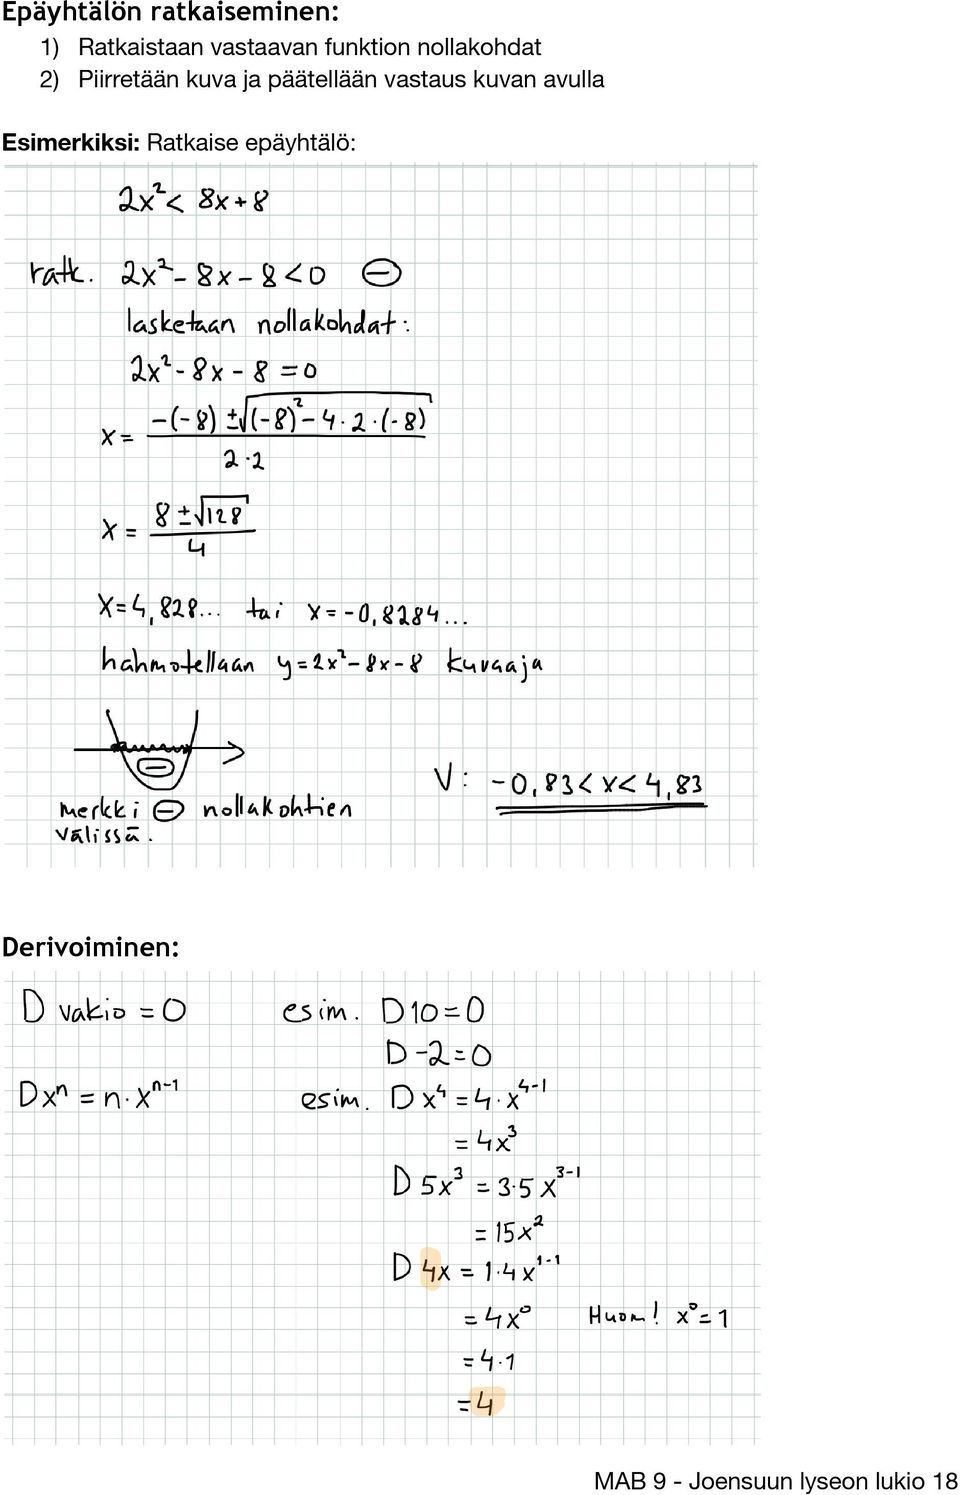 Epäyhtälön ratkaiseminen:
1) Ratkaistaan vastaavan funktion nollakohdat
2) Piirretään kuva ja päätellään vastaus kuvan avulla
Esimerkiksi: Ratkaise epäyhtälö:
2x² < 8x + 8
ratk. 2x² - 8x - 8 < 0 ⊖
lasketaan nollakohdat:
2x² - 8x - 8 = 0
x = (-(-8) ± √((-8)² - 4·2·(-8))) / (2·2)
x = (8 ± √128) / 4
x = 4,828... tai x = -0,8284...
hahmotellaan y = 2x² - 8x - 8 kuvaaja
⊖
merkki ⊖ nollakohtien
välissä.
V: -0,83 < x < 4,83
Derivoiminen:
D vakio = 0 esim. D 10 = 0
D -2 = 0
D xⁿ = n · xⁿ⁻¹ esim. D x⁴ = 4 · x⁴⁻¹
= 4x³
D 5x³ = 3·5 x³⁻¹
= 15x²
D 4x = 1·4 x¹⁻¹
= 4x⁰ Huom! x⁰ = 1
= 4·1
= 4
MAB 9 - Joensuun lyseon lukio 18